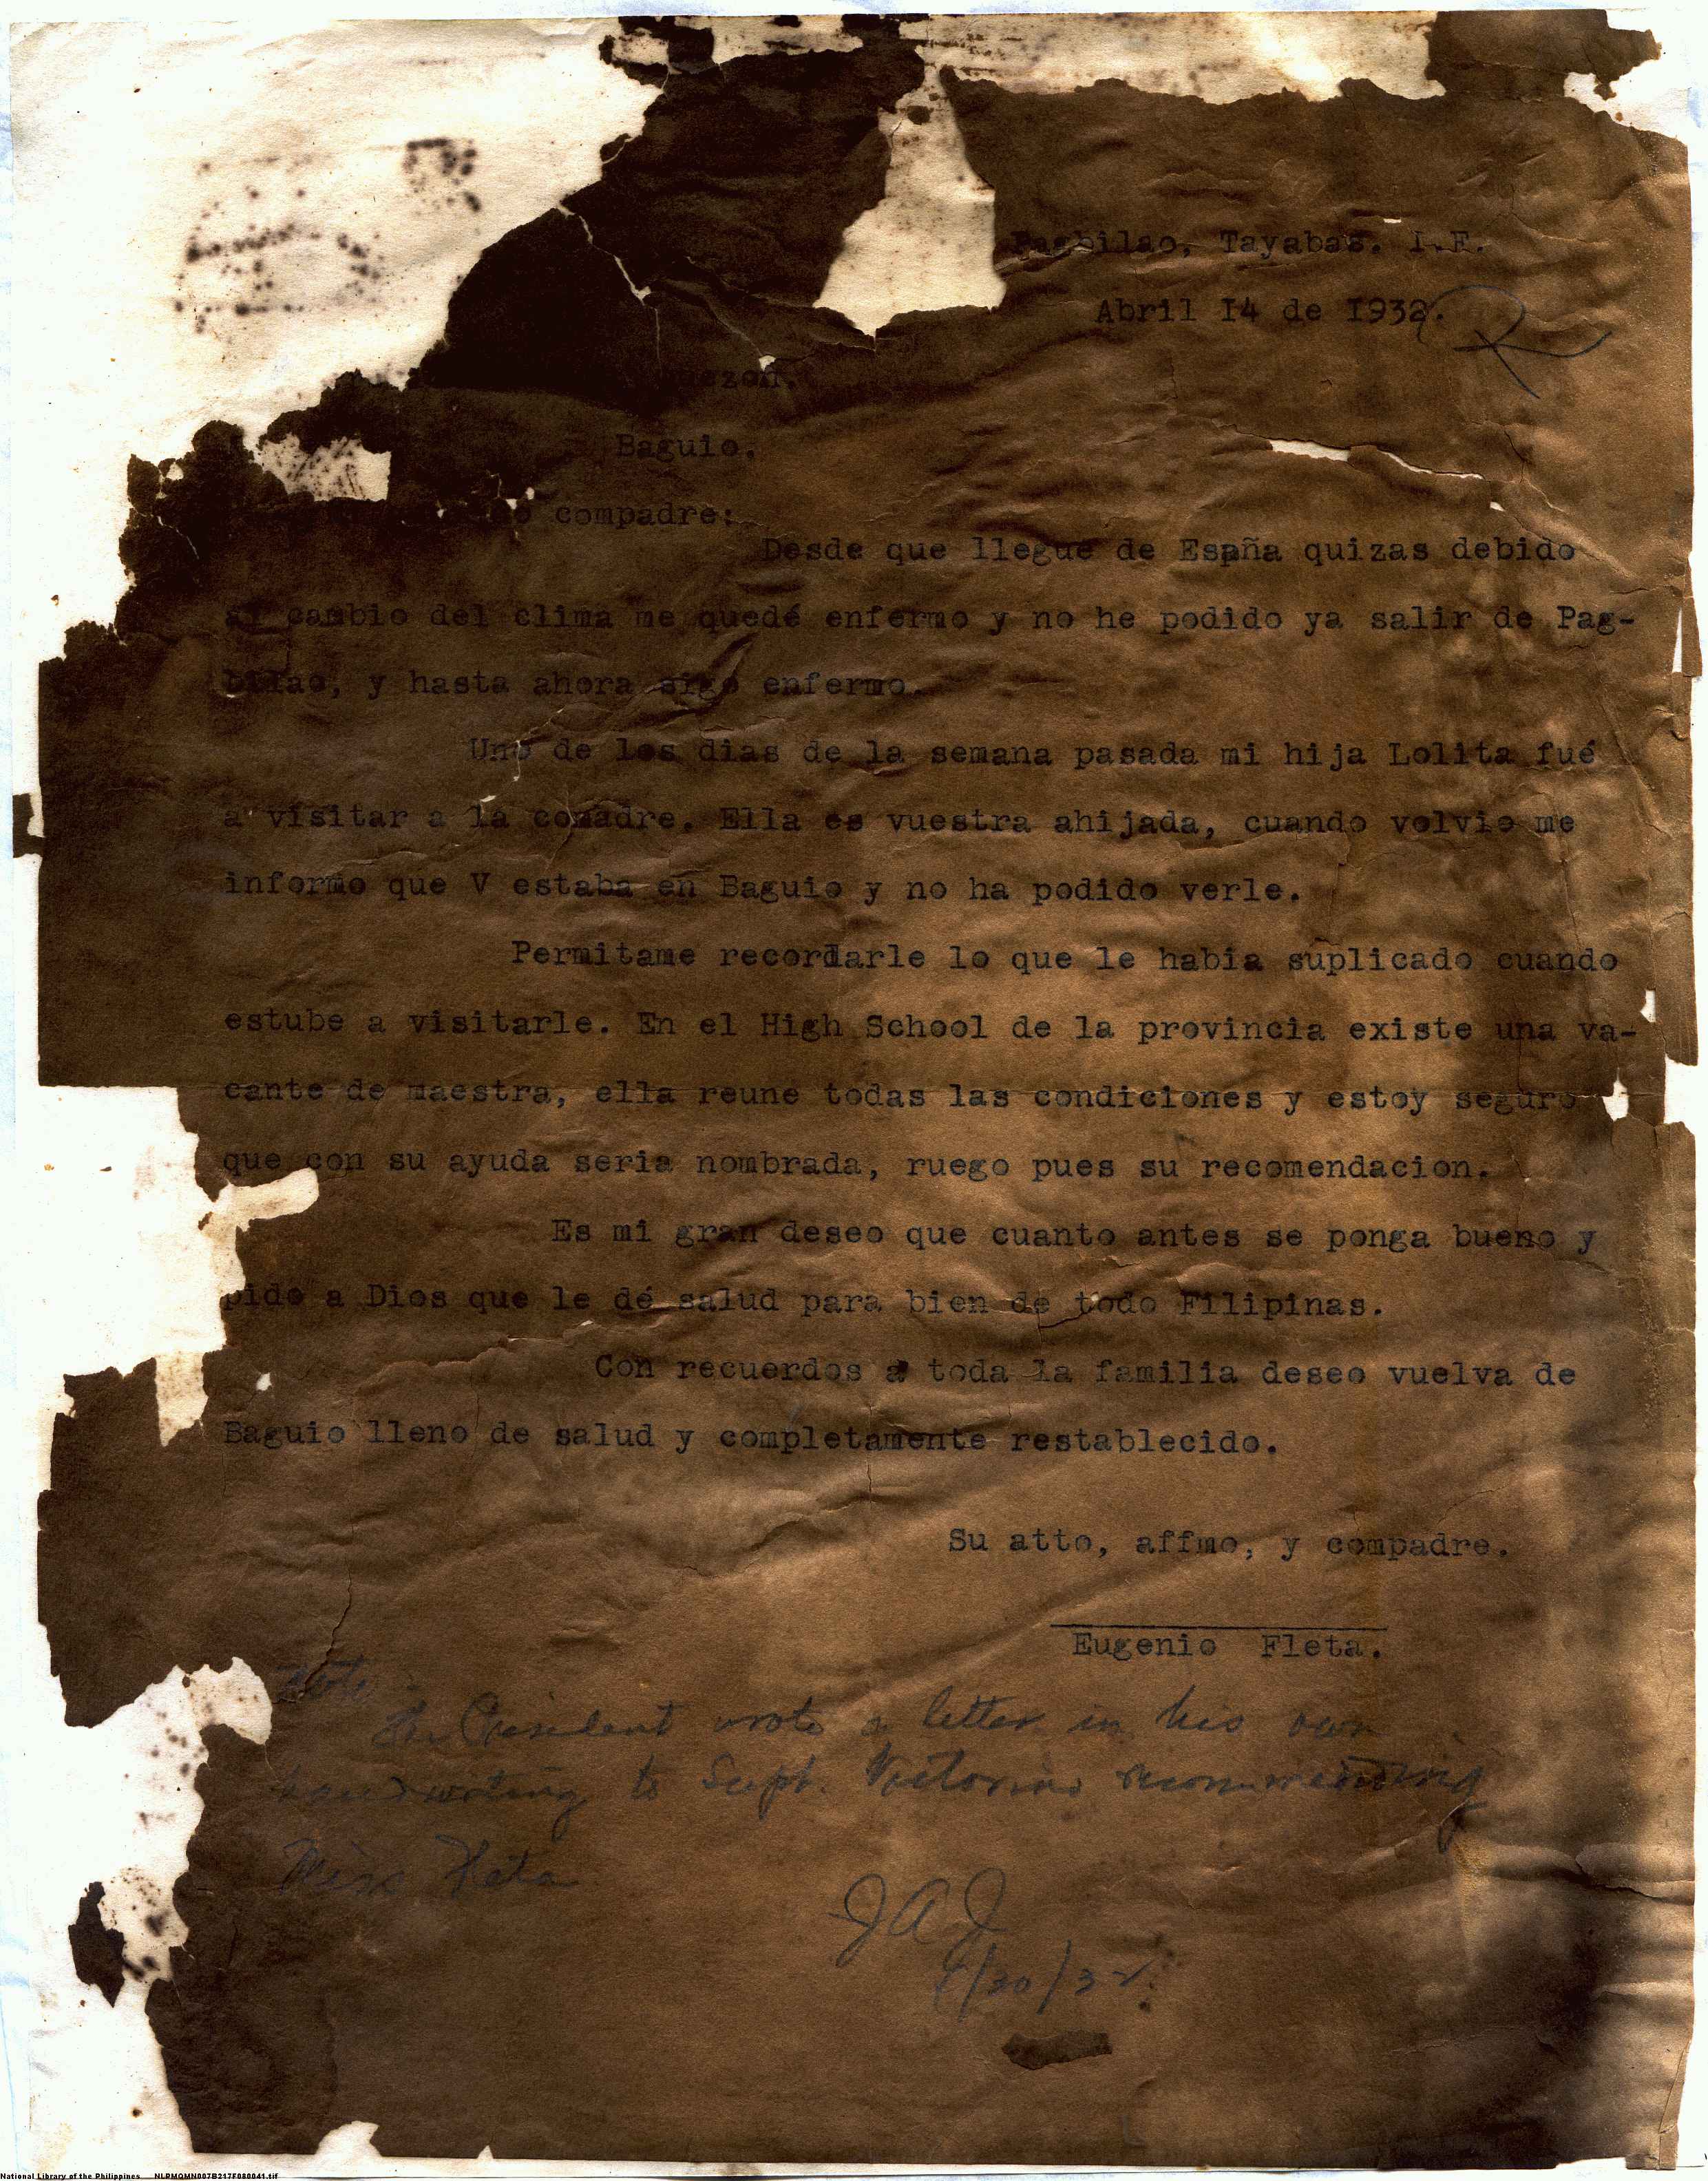 Pagbilao, Tayabas. I.F.
Abril I4 de I932.
R
uezon.
Baguio.
compadre:
Desde que llegue de España quizas debido
al cambio del clima me quedé enfermo y no he podido ya salir de Pag-
bilao, y hasta ahora sigo enfermo.
Uno de los dias de la semana pasada mi hija Lolita fué
a visitar a la comadre. Ella es vuestra ahijada, cuando volvio me
informo que V estaba en Baguio y no ha podido verle.
Permitame recordarle lo que le habia suplicado cuando
estube a visitarle. En el High School de la provincia existe una va-
cante de maestra, ella reune todas las condiciones y estoy seguro
que con su ayuda seria nombrada, ruego pues su recomendacion.
Es mi gran deseo que cuanto antes se ponga bueno y
pido a Dios que le dé salud para bien de todo Filipinas.
Con recuerdos a toda la familia deseo vuelva de
Baguio lleno de salud y completamente restablecido.
Su atto, affmo, y compadre.
Eugenio Fleta.
Note:
The President wrote a letter in his own
handwriting to Supt. Victorino recommending
Miss Fleta
JAJ
/30/32
National Library of the Philippines NLPMQMN007B217F080041.tif